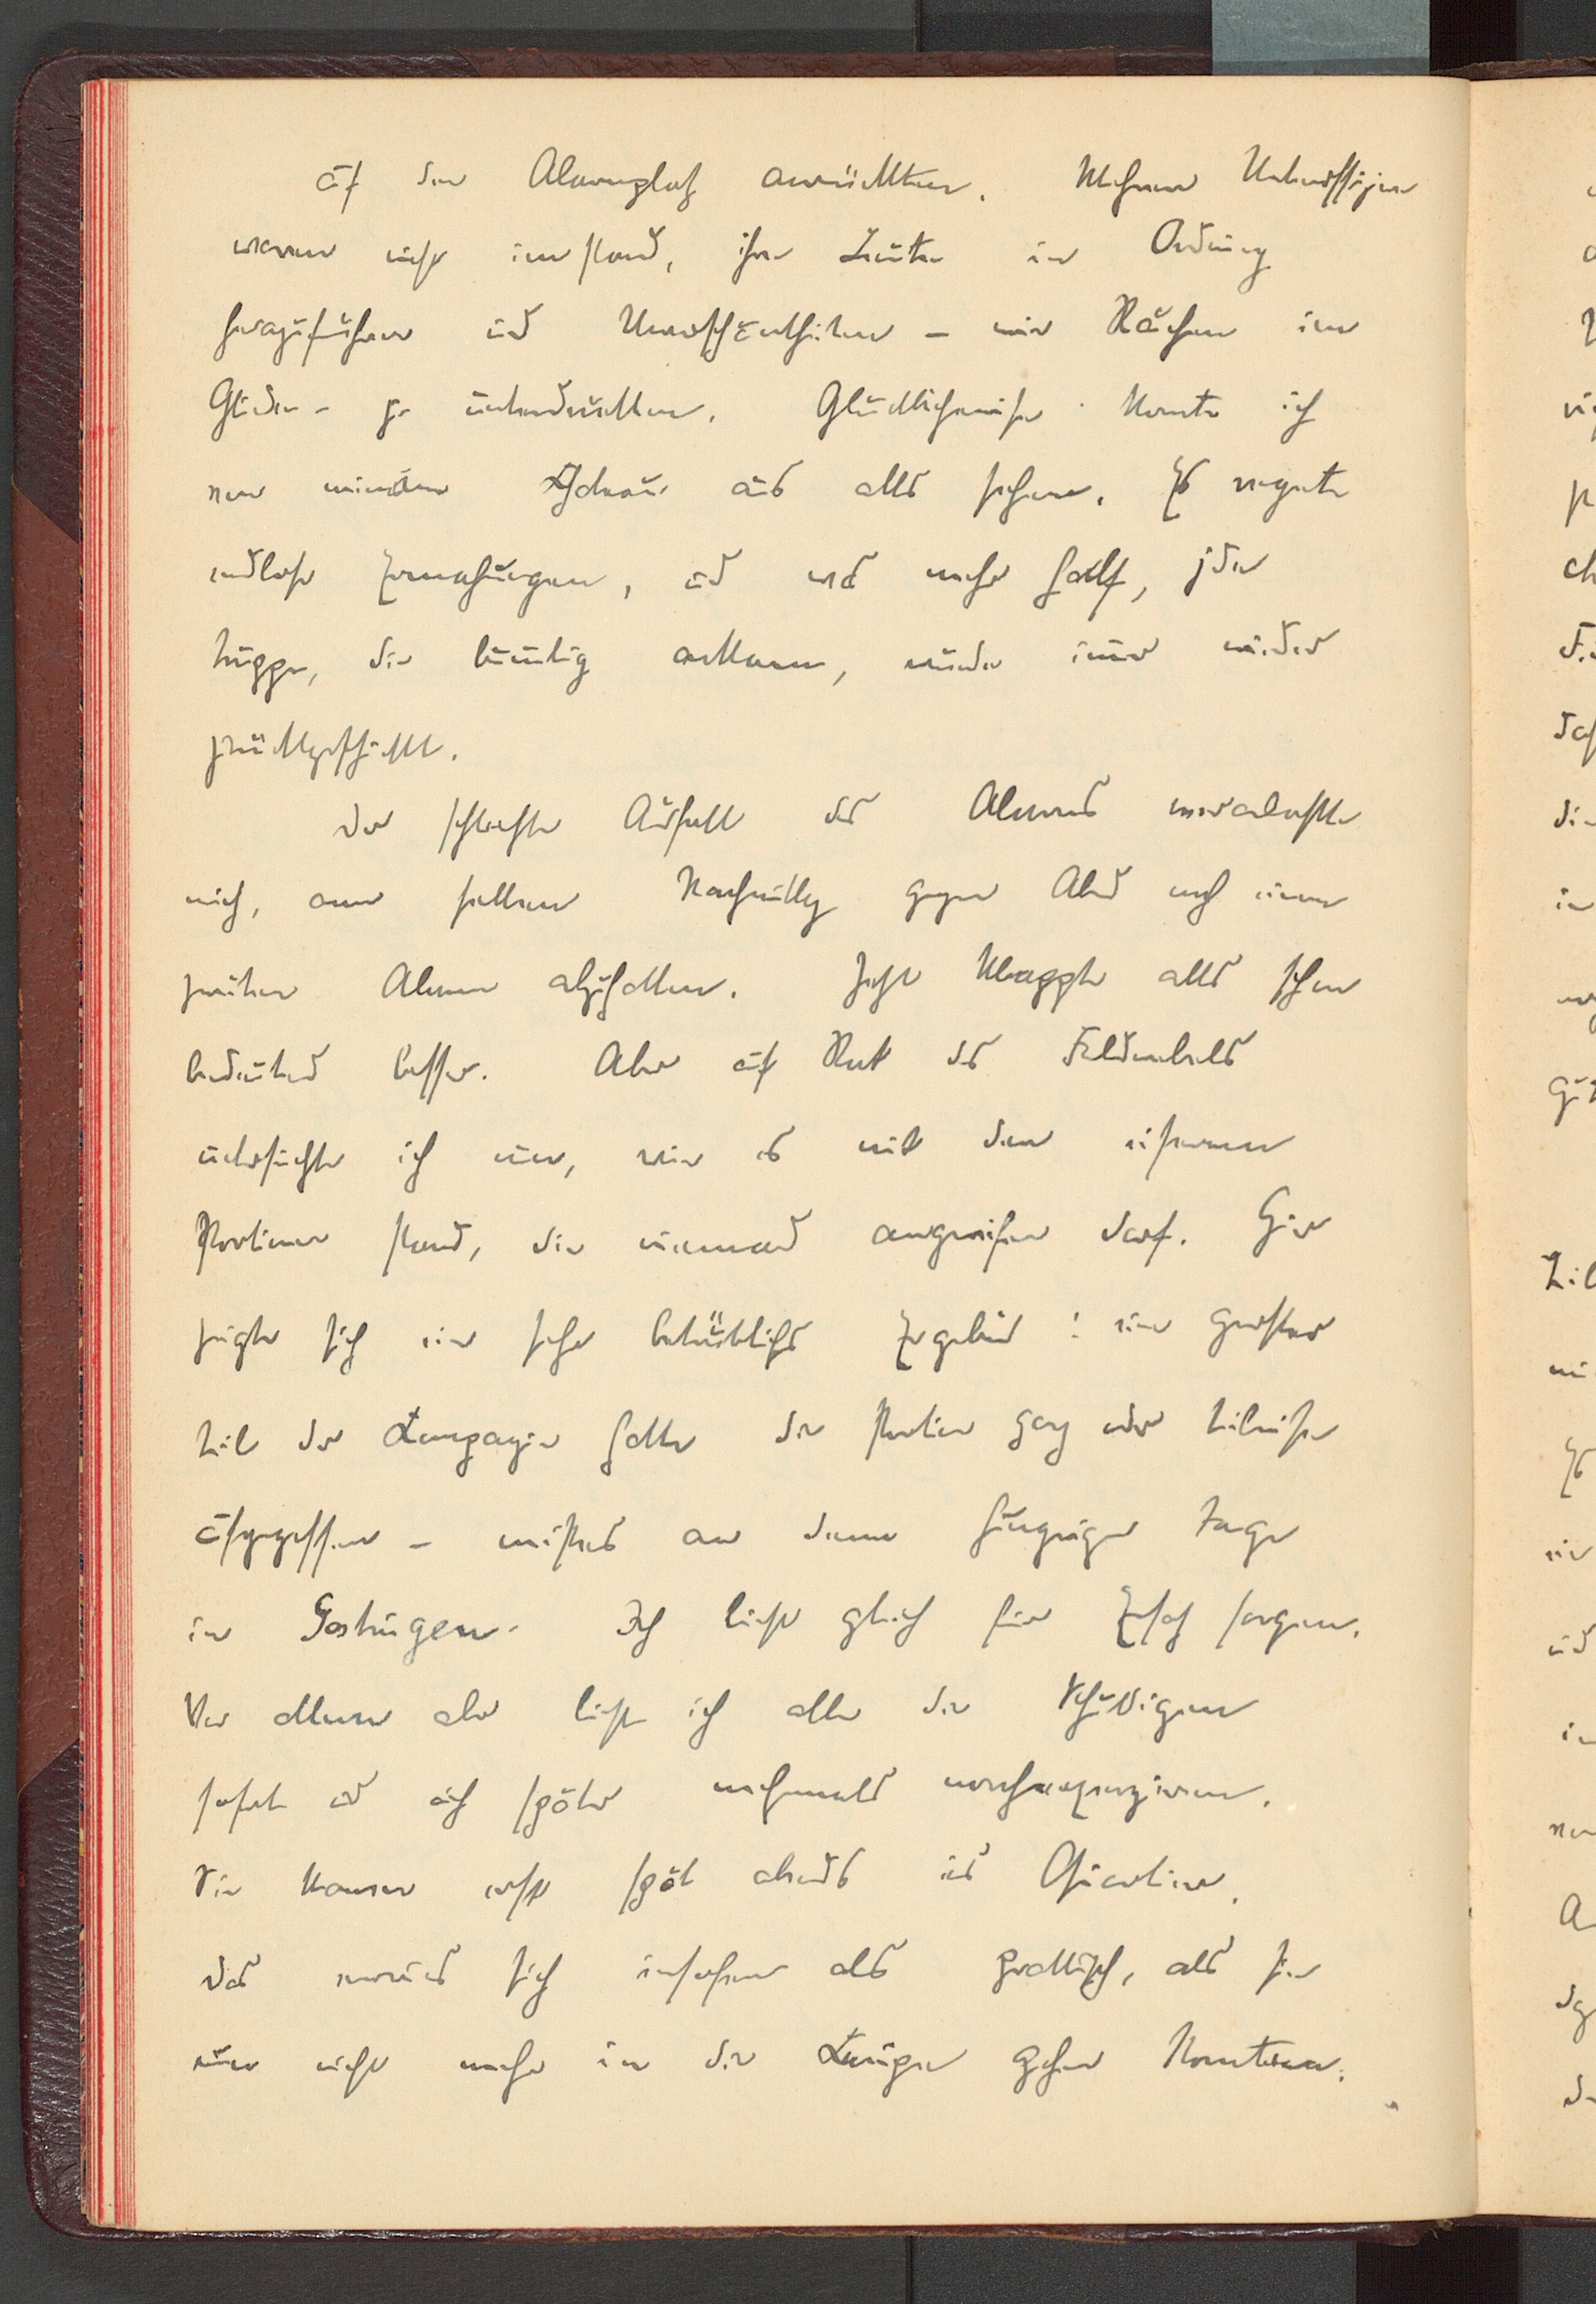 auf den Alarmplatz anrückten. Mehrere Unteroffiziere
waren nicht imstand, ihre Leute in Ordnung
heranzuführen und Unvorschriftheiten – wie Rauchen im
Gliede – zu unterdrücken. Glücklicherweise konnte ich
von genau aus alles sehen. Es regnete
endlose Ermahnungen, und was mehr half, jede
Gruppe, die bummelig ankam, wurde immer wieder
zurückgeschickt.
Der schlechte Ausfall des Alarms veranlasste
mich, am selben Nachmittag gegen Abend noch einen
zweiten Alarm abzuhalten. Jetzt klappte alles schon
bedeutend besser. Aber auf Rat des Feldwebels
untersuchte ich nun, wie es mit den eisernen
Portionen stand, die niemand angreifen darf. Hier
zeigte sich ein sehr betrübliches Ergebnis: ein grosser
Teil der Kompagnie hatte die Portion ganz oder teilweise
aufgegessen – meistens an dem hungrigen Tage
in Gostingen. Ich liess gleich für Ersatz sorgen.
Vor allem aber liess ich alle die Schuldigen
sofort und auch später nochmals nachexerzieren.
Sie kamen erst spät abends ins Quartier.
Das erwies sich insofern als praktisch, als sie
nun nicht mehr in die Kneipen gehen konnten.